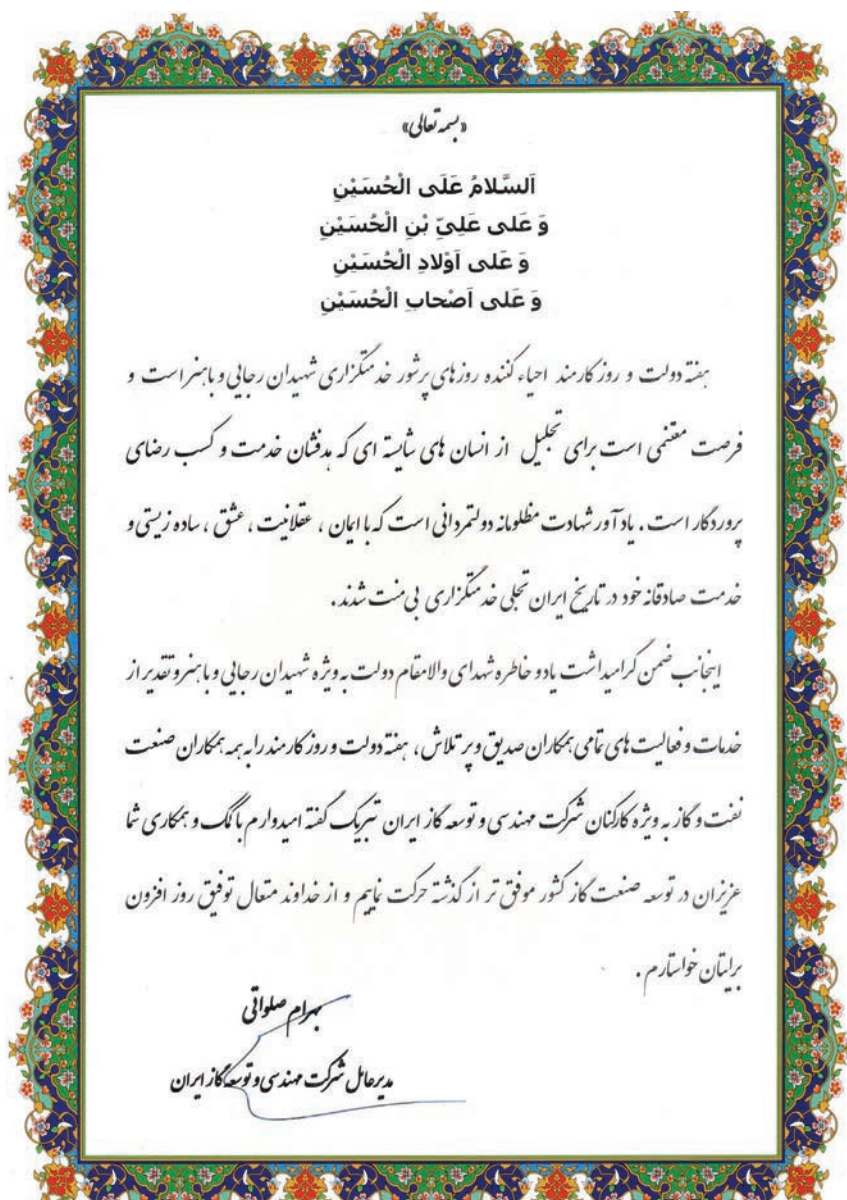 «بسمه تعالی»
اَلسَّلامُ عَلَی الْحُسَیْنِ
وَ عَلی عَلِیِّ بْنِ الْحُسَیْنِ
وَ عَلی اَوْلادِ الْحُسَیْنِ
وَ عَلی اَصْحابِ الْحُسَیْنِ
هفته دولت و روز کارمند احیاء کننده روزهای پرشور خدمتگزاری شهیدان رجایی و باهنر است و
فرصت مغتنمی است برای تجلیل از انسان های شایسته ای که هدفشان خدمت و کسب رضای
پروردگار است . یادآور شهادت مظلومانه دولتمردانی است که با ایمان ، عقلانیت ، عشق ، ساده زیستی و
خدمت صادقانه خود در تاریخ ایران تجلی خدمتگزاری بی منت شدند .
اینجانب ضمن گرامیداشت یاد و خاطره شهدای والامقام دولت به ویژه شهیدان رجایی و باهنر و تقدیر از
خدمات و فعالیت های تمامی همکاران صدیق و پر تلاش ، هفته دولت و روز کارمند را به همه همکاران صنعت
نفت و گاز به ویژه کارکنان شرکت مهندسی و توسعه گاز ایران تبریک گفته امیدوارم با کمک و همکاری شما
عزیزان در توسعه صنعت گاز کشور موفق تر از گذشته حرکت نماییم و از خداوند متعال توفیق روز افزون
برایتان خواستارم .
بهرام صلواتی
مدیرعامل شرکت مهندسی و توسعه گاز ایران